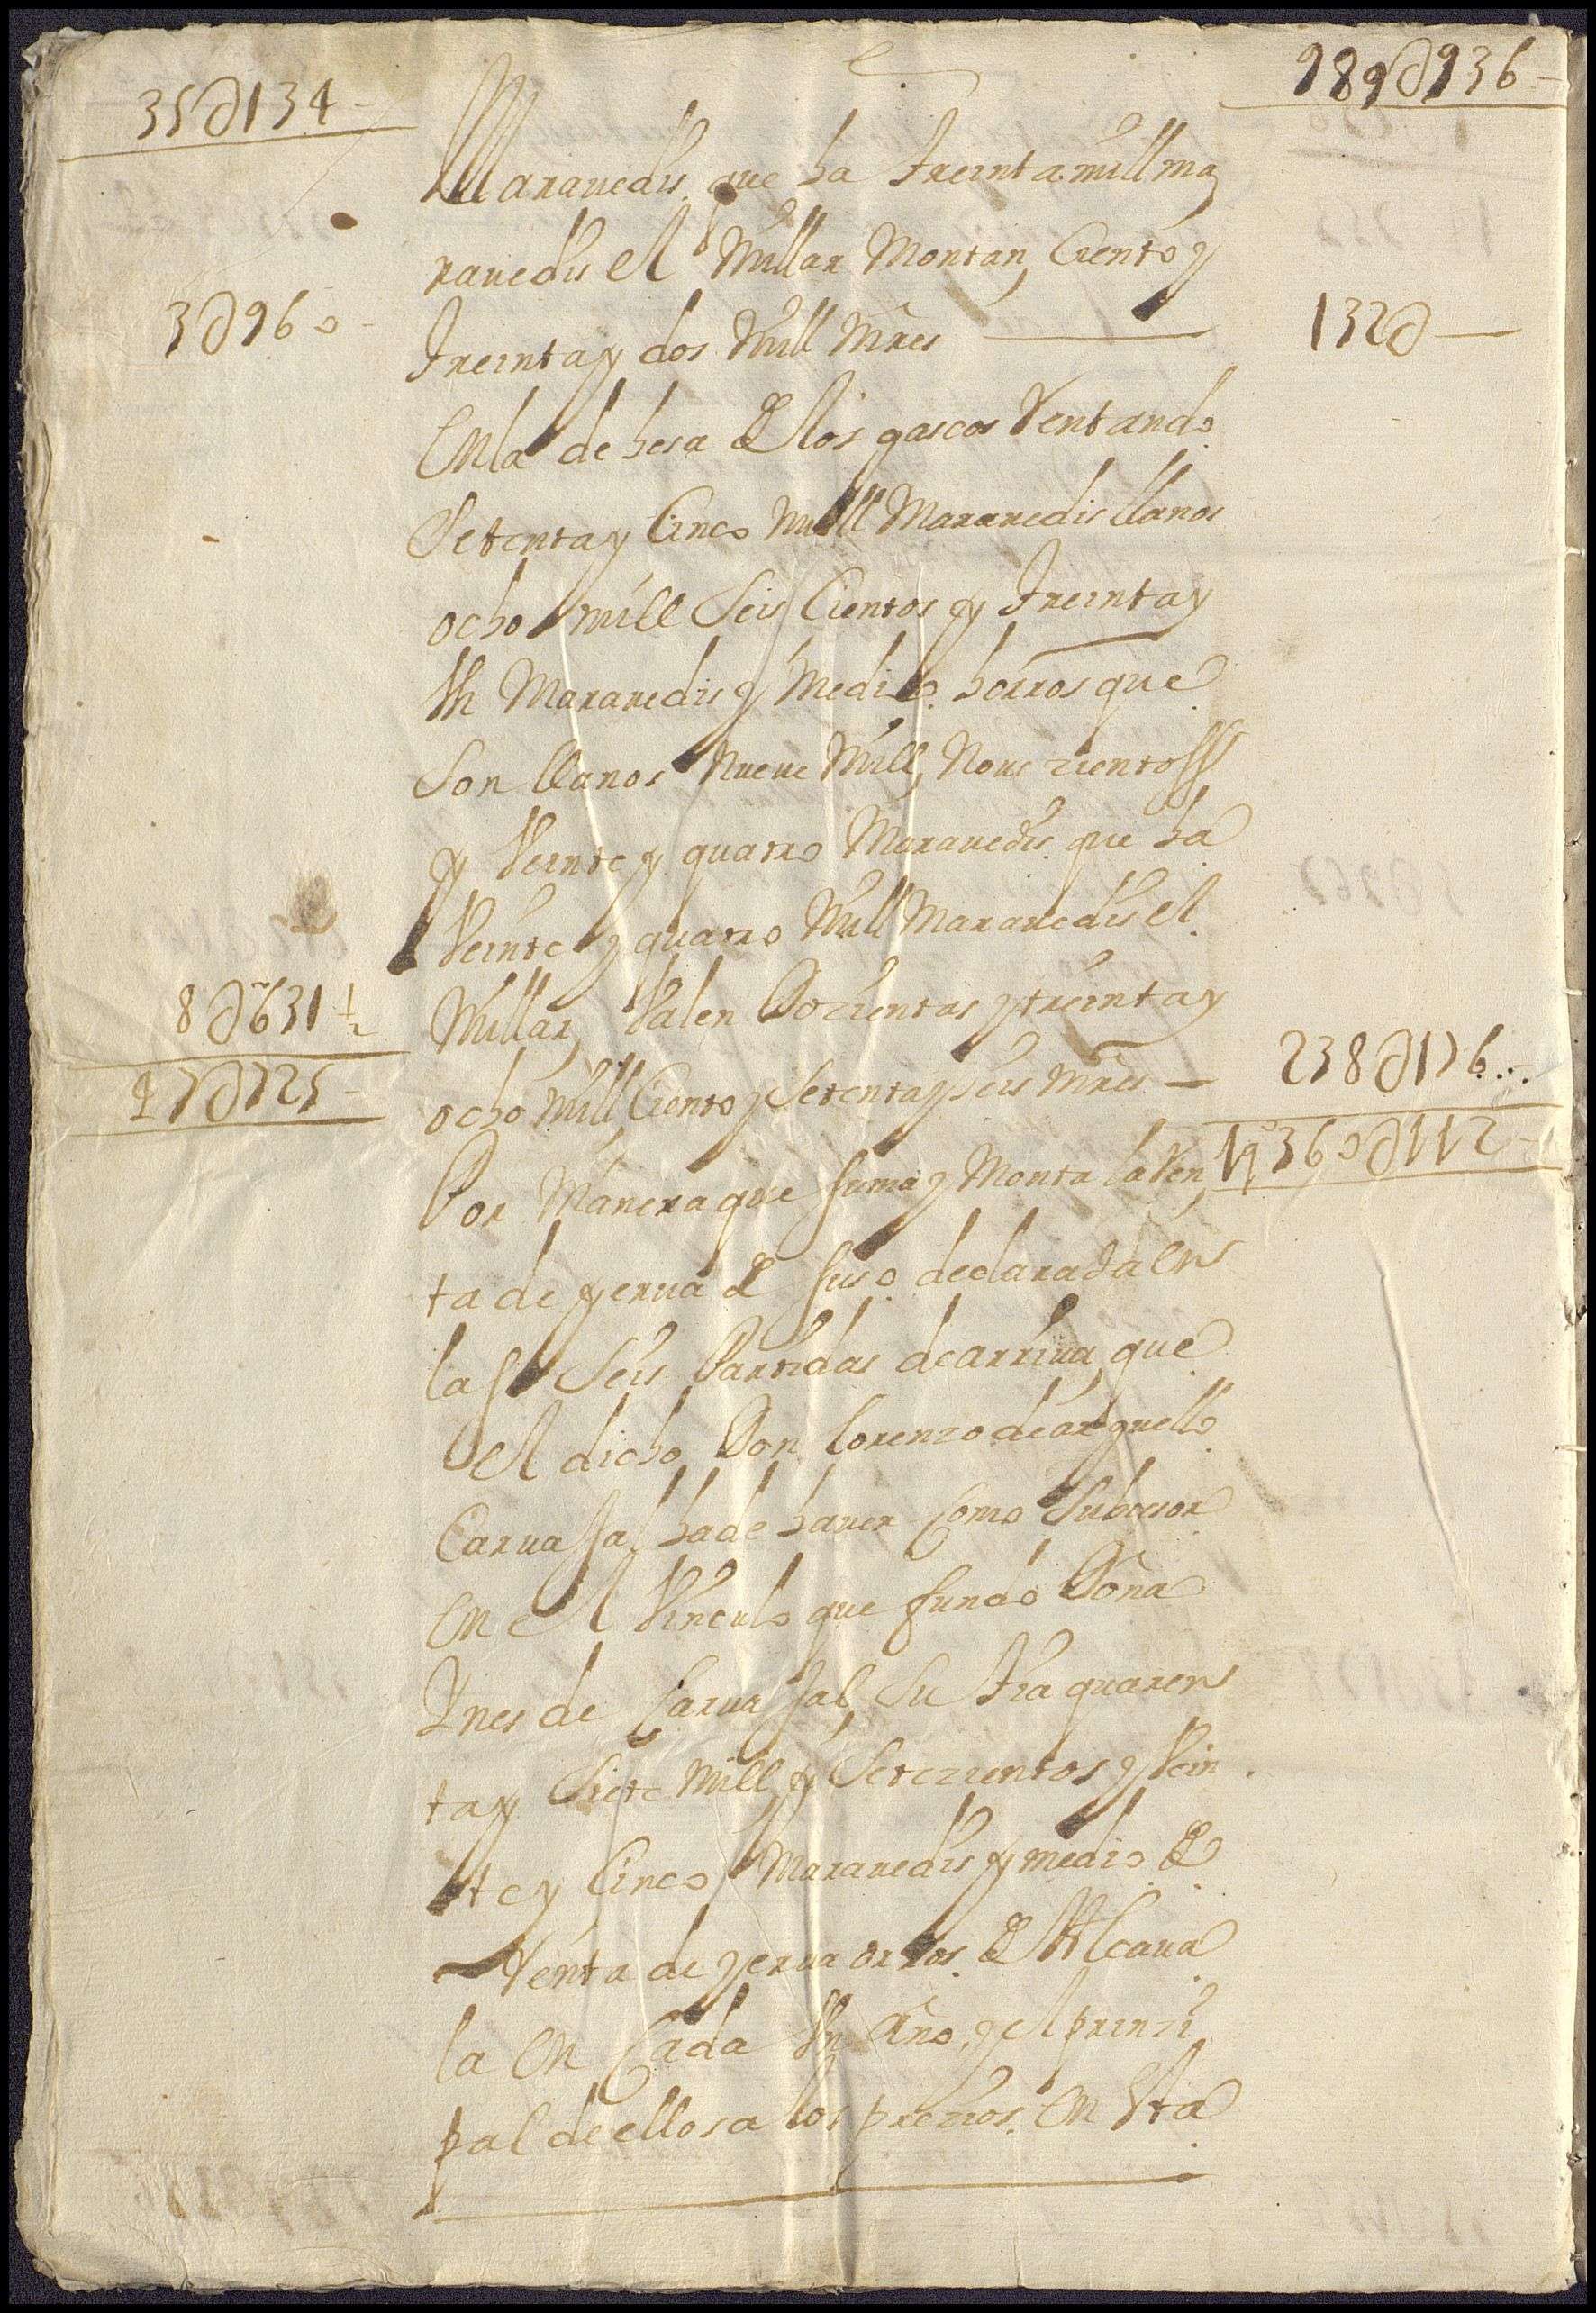 35∂134 – 989∂936 –
Marauedis, que ha treinta mill ma
rauedis el Millar Montan Ciento y
3∂960 – treinta y dos Mill Mrs — 132∂ —
En la dehesa de los gascos Rentando
Setenta y Cinco mill Marauedis llanos
ocho mill Seis Cientos y treinta y
Vn Marauedis y Medio horros que
Son llanos Nueue Mill, Nouecientoss
y Veinte y quatro Marauedis que ha
Veinte y quatro Mill Marauedis el
8∂631 ½ Millar, Valen Docientas y treinta y
47∂725 – ocho Mill Ciento y Setenta y seis Mrs — 238∂176 . –
Por Manera que suma y Monta la Ren 1q 360∂112 –
ta de yerua de suso declarada En
las Seis Partidas de arriua que
el dicho Don Lorenzo de arguello
Carua Jal, ha de hauer Como Subcesor
En el Vinculo que fundó Doña
Ynes de Carua Jal, Su tia quaren
ta y Siete Mill y Setecientos y Vein
te y Cinco Marauedis y medio de
Renta de yerua orros de Alcaua
la En Cada Vn Año, y el prinzi
pal de ellos a los prezios En Sta